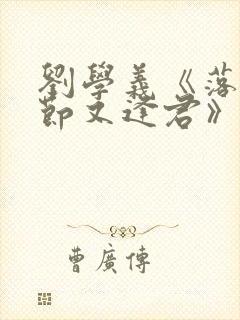 劉學義《落
節又逢君》
曹廣傳